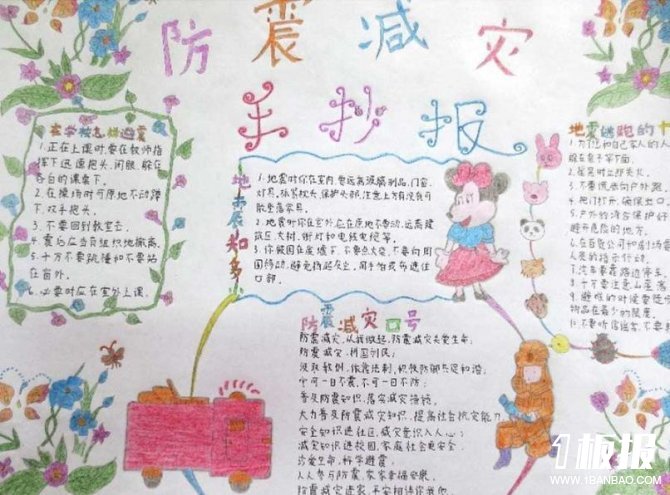 防震减灾
手抄报
在学校怎样避震
1.正在上课时，要在教师指
挥下迅速抱头、闭眼、躲在
各自的课桌下。
2.在操场时可原地不动蹲
下，双手抱头。
3.不要回到教室去。
4.震后应当有组织地撤离。
5.千万不要跳楼和不要站
在窗外。
6.必要时应在室外上课。
地震知多
1.地震时你在室内，要远离玻璃制品、门窗、
灯具，
2.地震时你在室外应在原地不要动，远离建
筑区、大树、街灯和电线电缆等。
3.你被困在废墟下，不要点火，不要向周
围移动，避免扬起灰尘，用手帕或布遮住
口部。
地震逃跑的十
1.为了你和自己家人的人
躲在桌子等下面。
3.不要慌张向户外跑
4.把门打开，确保出口。
5.户外的场合保护好
避开危险的地方。
6.在百货公司和剧场
人员的指示行动。
7.汽车要靠路边停
8.千万要注意山崖
9.避难的时候要
物品在最少的限度。
防震减灾口号
防震减灾，从我做起；防震减灾关爱生命；
防震减灾，利国利民；
宁可一日不震，不可一日不防；
普及防震知识，落实减灾措施。
大力普及防震减灾知识，提高社会抗灾能力
安全知识进社区，减灾意识入人心；
减灾知识进校园，家庭社会更安全。
珍爱生命，科学避震；
人人参与防震，家家幸福安康。
防震减灾进家，平安相伴你我他
1板报
WWW.1BANBAO.COM